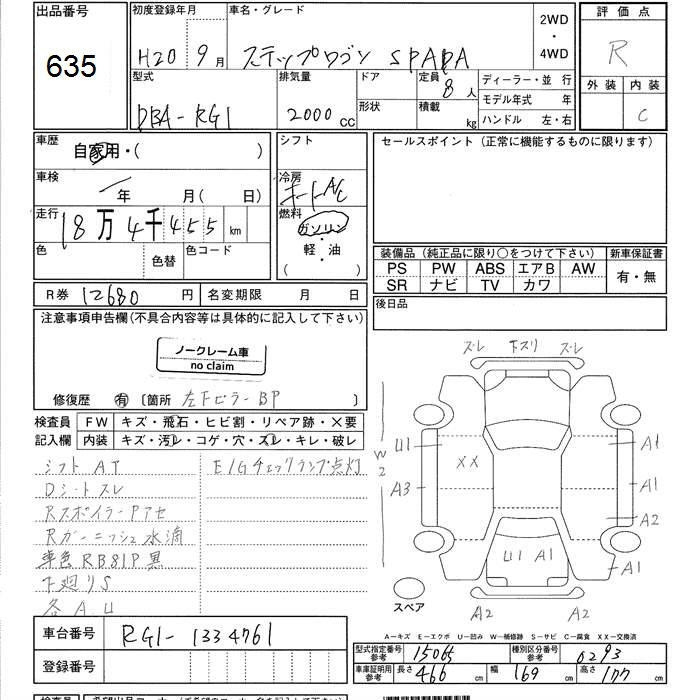 出品番号 初度登録年月 車名・グレード 2WD・4WD 評価点
635 H20 9月 ステップワゴン SPADA R
外装 内装
C
型式 排気量 ドア 定員 8人 ディーラー・並行
DBA-RG1 2000cc 形状 積載 kg モデル年式 年
ハンドル 左・右
車歴 自家用・( ) シフト セールスポイント(正常に機能するものに限ります)
車検 年 月(日) 冷房 オートAC
走行 18万4千455km 燃料 ガソリン・軽・油( )
色 色替 色コード
装備品(純正品に限り○をつけて下さい) 新車保証書
PS PW ABS エアB AW 有・無
SR ナビ TV カワ
R券 12680円 名変期限 月 日 後日品
注意事項申告欄(不具合内容等は具体的に記入して下さい)
ノークレーム車
no claim
修復歴 有 〔箇所 左下ピラーBP 〕
検査員 FW キズ・飛石・ヒビ割・リペア跡・×要
記入欄 内装 キズ・汚レ・コゲ・穴・スレ・キレ・破レ
シフト AT E/Gチェックランプ点灯
Dシートスレ
RスポイラーPアセ
Rガーニッシュ水滴
車色RB81P黒
下廻りS
各A.U
ズレ 下スリ ズレ
U1 W2 XX A1
A3 A1
A2
U1 A1 A1
スペア A2 A2
A-キズ E-エクボ U-凹み W-補修跡 S-サビ C-腐食 XX-交換済
車台番号 RG1-1334761
登録番号
型式指定番号 参考 15065 種別区分番号 参考 0293
車庫証明用 参考 長さ 466cm 幅 169cm 高さ 177cm